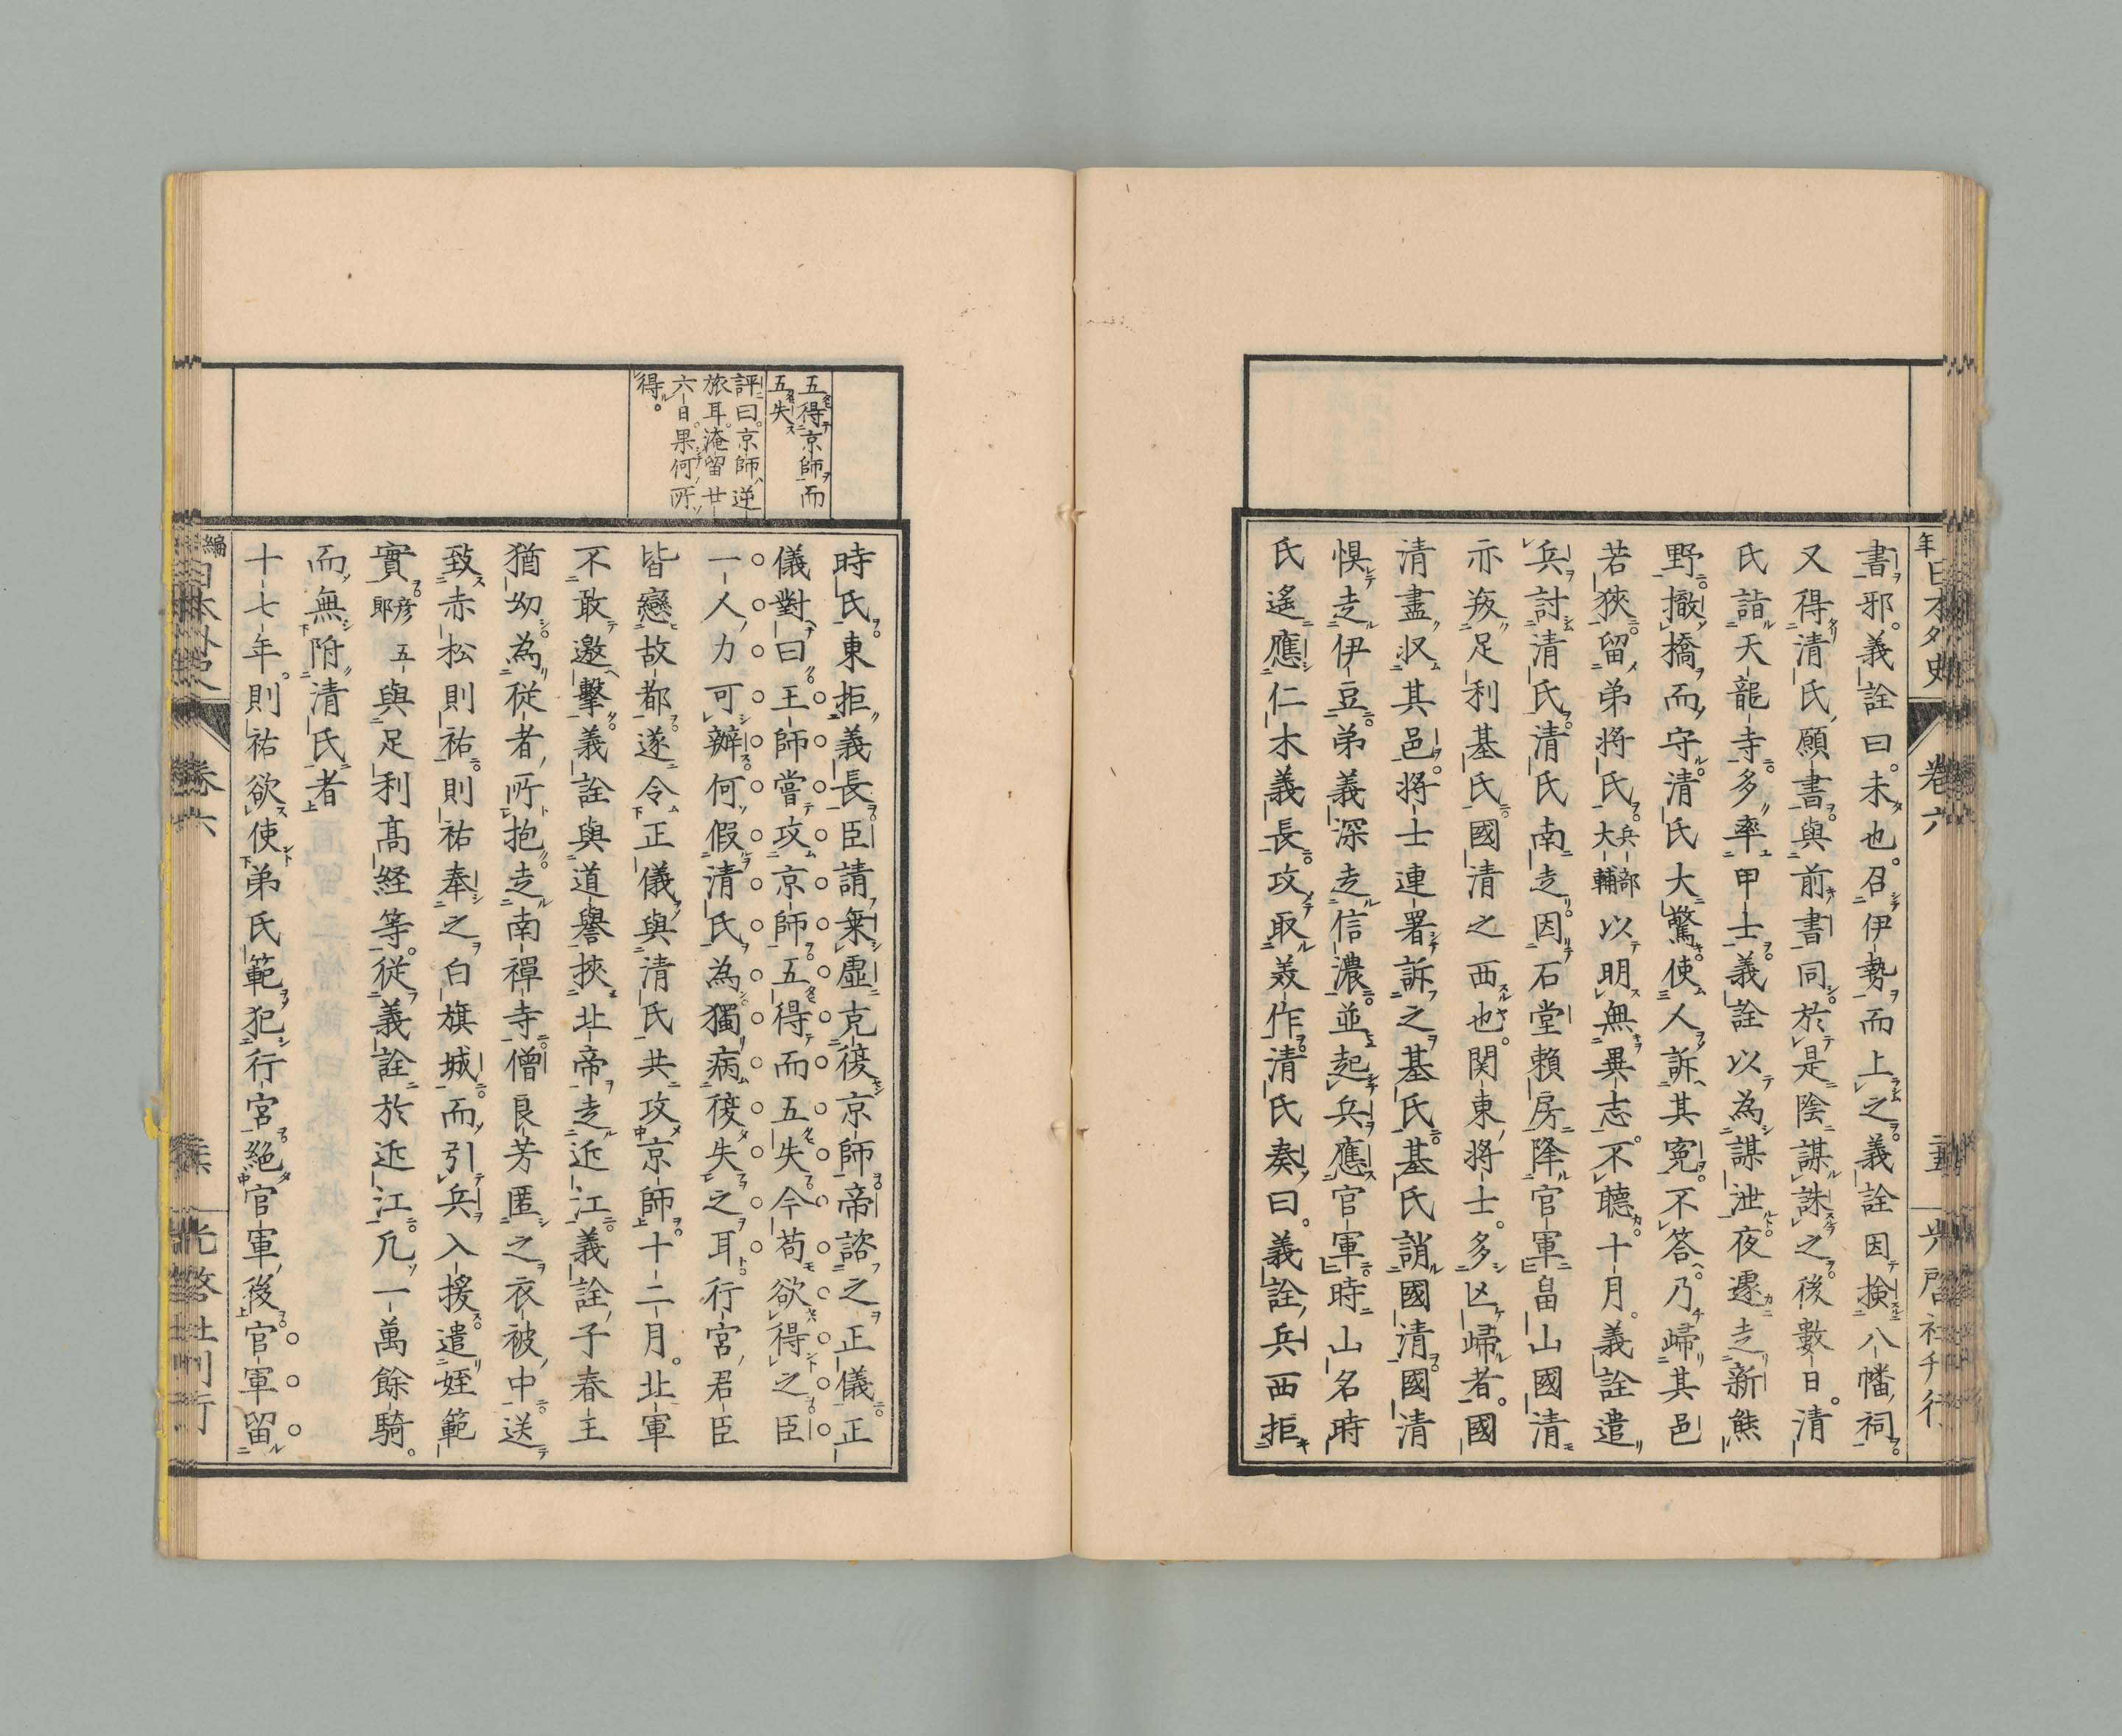 書邪。義詮曰。未也。召伊勢而上之。義詮因檢八幡祠。
又得清氏願書。與前書同。於是陰謀誅之。後數日。清
氏詣天龍寺。多率甲士。義詮以為謀泄。夜遽走新熊
野。撤橋而守。清氏大驚。使人訴其寃。不答。乃歸其邑
若狹。留弟將氏兵部大輔以明無異志。不聽。十月。義詮遣
兵討清氏。清氏南走。因石堂賴房降官軍。畠山國清
亦叛足利基氏。國清之西也。関東將士。多亡歸者。國
清盡収其邑。將士連署訴之基氏。基氏誚國清。國清
惧走伊豆。弟義深走信濃。並起兵應官軍。時山名時
氏遙應仁木義長。攻取美作。清氏奏曰。義詮兵西拒
五得京師而
五失
評曰。京師逆
旅耳。淹留廿
六日。果何所
得。
時氏。東拒義長。臣請乗虛克復京師。帝諮之正儀。正
儀對曰。王師嘗攻京師。五得而五失。今苟欲得之。臣
一人力可辦。何假清氏為。獨病復失之耳。行宮君臣
皆戀故都。遂令正儀與清氏共攻京師。十二月。北軍
不敢邀擊。義詮與道譽挾北帝走近江。義詮子春王
猶幼。為從者所抱。走南禪寺。僧良芳匿之衣被中。送
致赤松則祐。則祐奉之白旗城。而引兵入援。遣姪範
實彦五郎與足利高経等。從義詮於近江。凡一萬餘騎。
而無附清氏者
十七年。則祐欲使弟氏範犯行宮絕官軍後。官軍留
編年日本外史
卷六
光啓社刊行